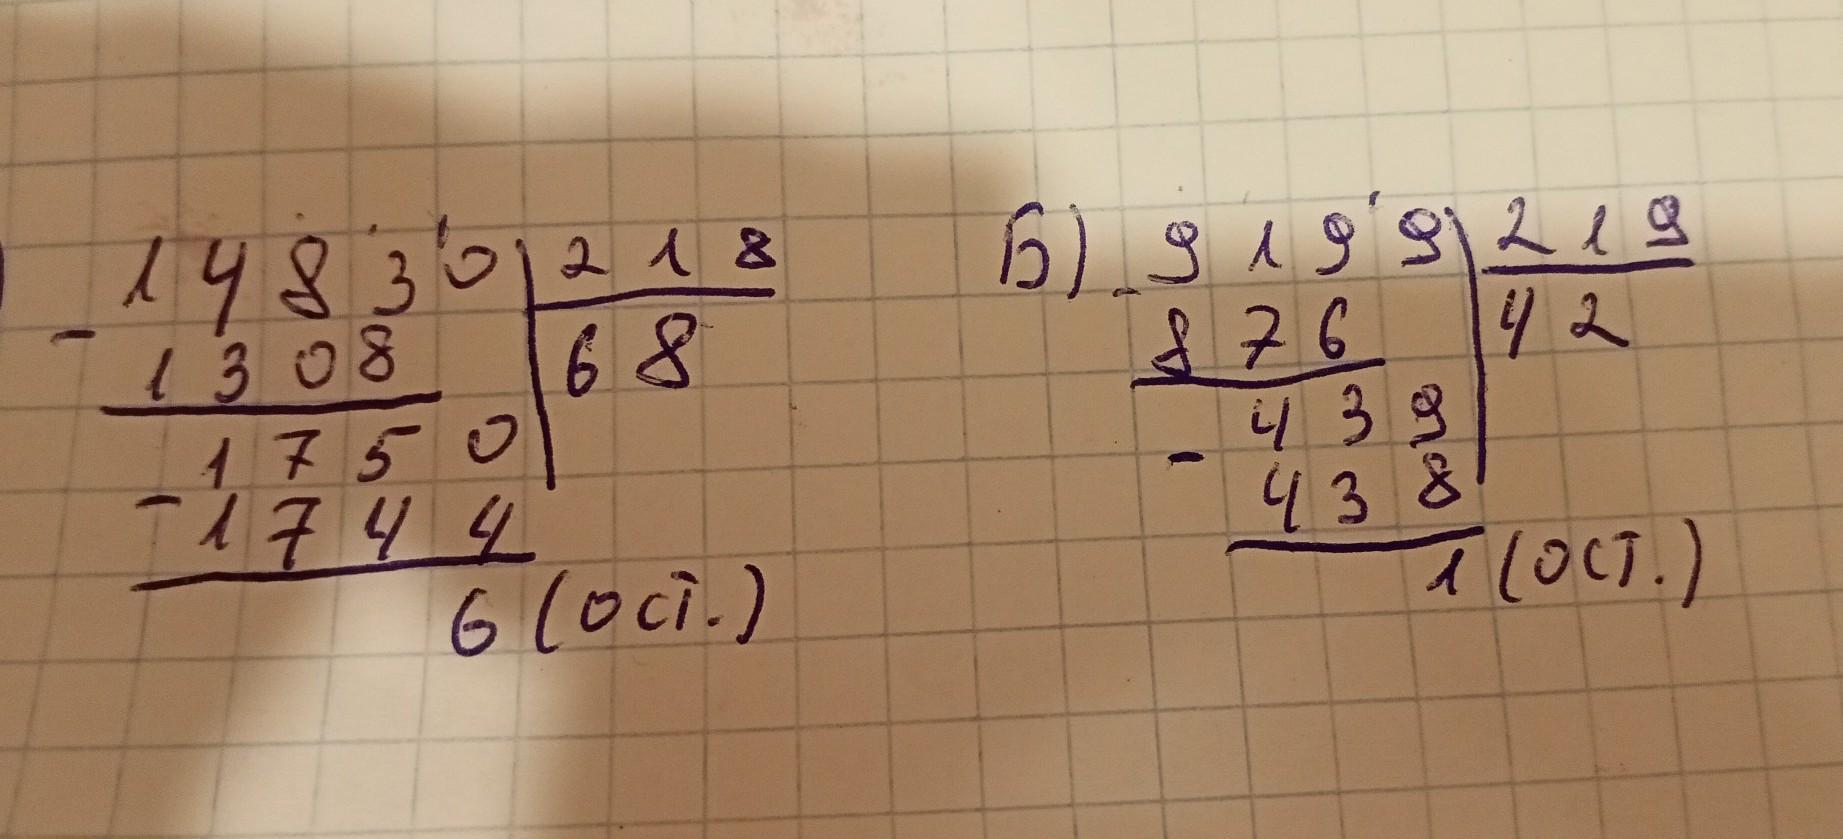 ) 14830 218 Б) 9199 219
- 1308 68 - 876 42
1750 439
- 1744 - 438
6 (ост.) 1 (ост.)